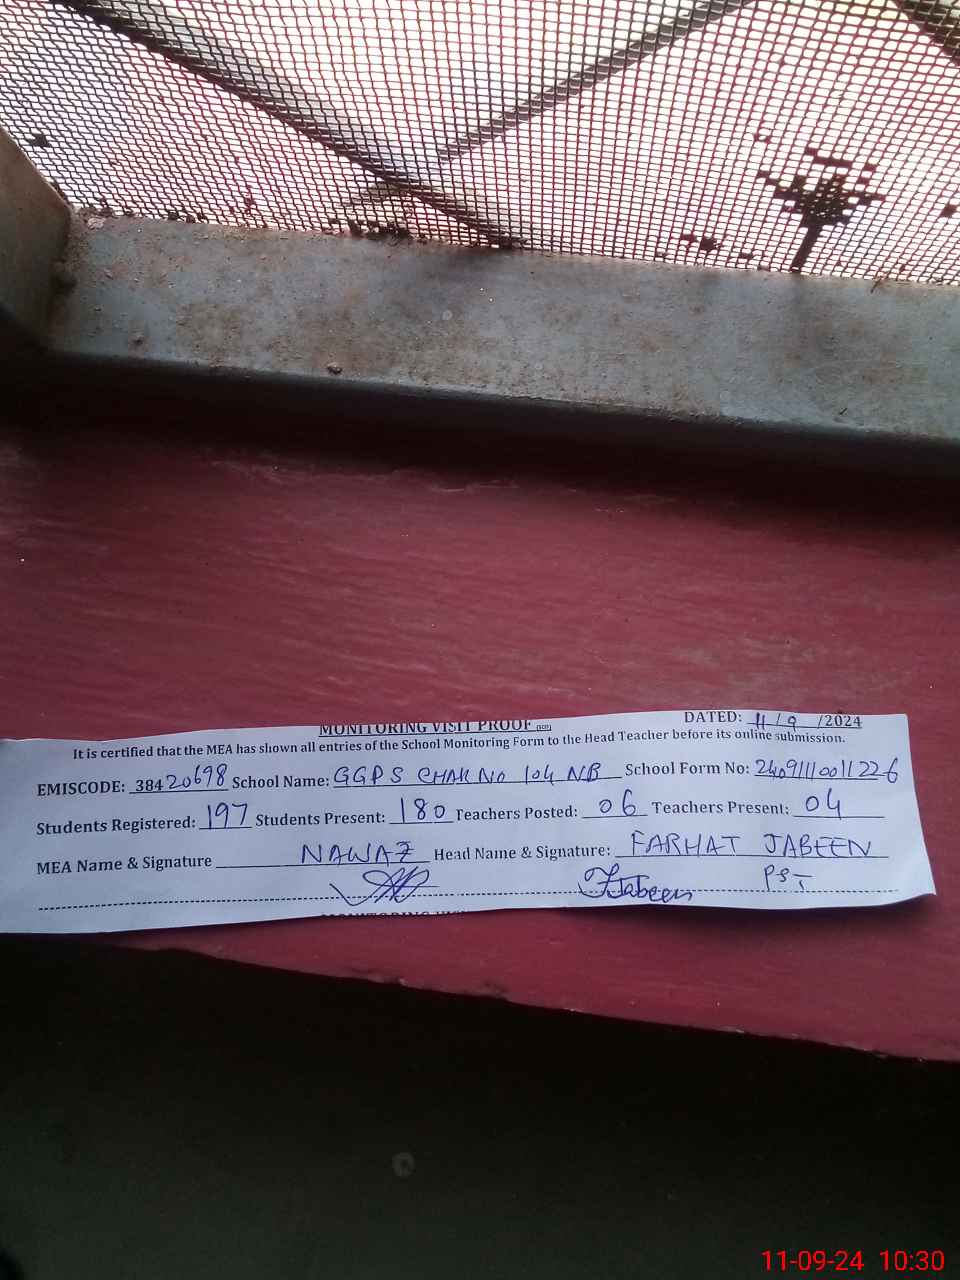 MONITORING VISIT PROOF
DATED: 11/9/2024
It is certified that the MEA has shown all entries of the School Monitoring Form to the Head Teacher before its online submission.
EMISCODE: 38420698 School Name: GGPS CHAK No 104 NB School Form No: 2409111001 1226
Students Registered: 197 Students Present: 180 Teachers Posted: 06 Teachers Present: 04
MEA Name & Signature NAWAZ Head Name & Signature: FARHAT JABEEN
FJabeen PST
11-09-24 10:30